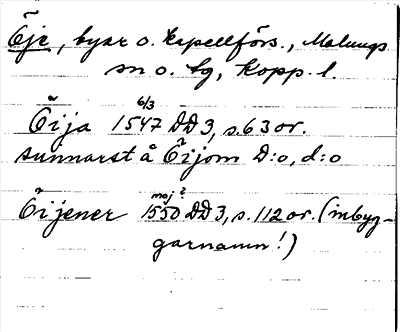 Öje, byar o. kapellförs., Malungs
sn o. tg, Kopp. l.
6/3
Öija 1547 DD3, s. 63 or.
sunnarst å Öijom D:o, d:o
maj ?
Öijener 1550 DD3, s. 112 or. (inbyg-
garnamn!)